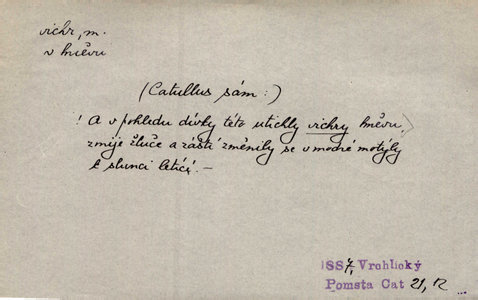 vichr, m.
v hněvu
(Catullus sám:)
! A v pohledu dívky této utichly vichry hněvu,
zmije žluče a zášti změnily se v modré motýly
k slunci letící. —
1887, Vrchlický
Pomsta Cat 21, 12